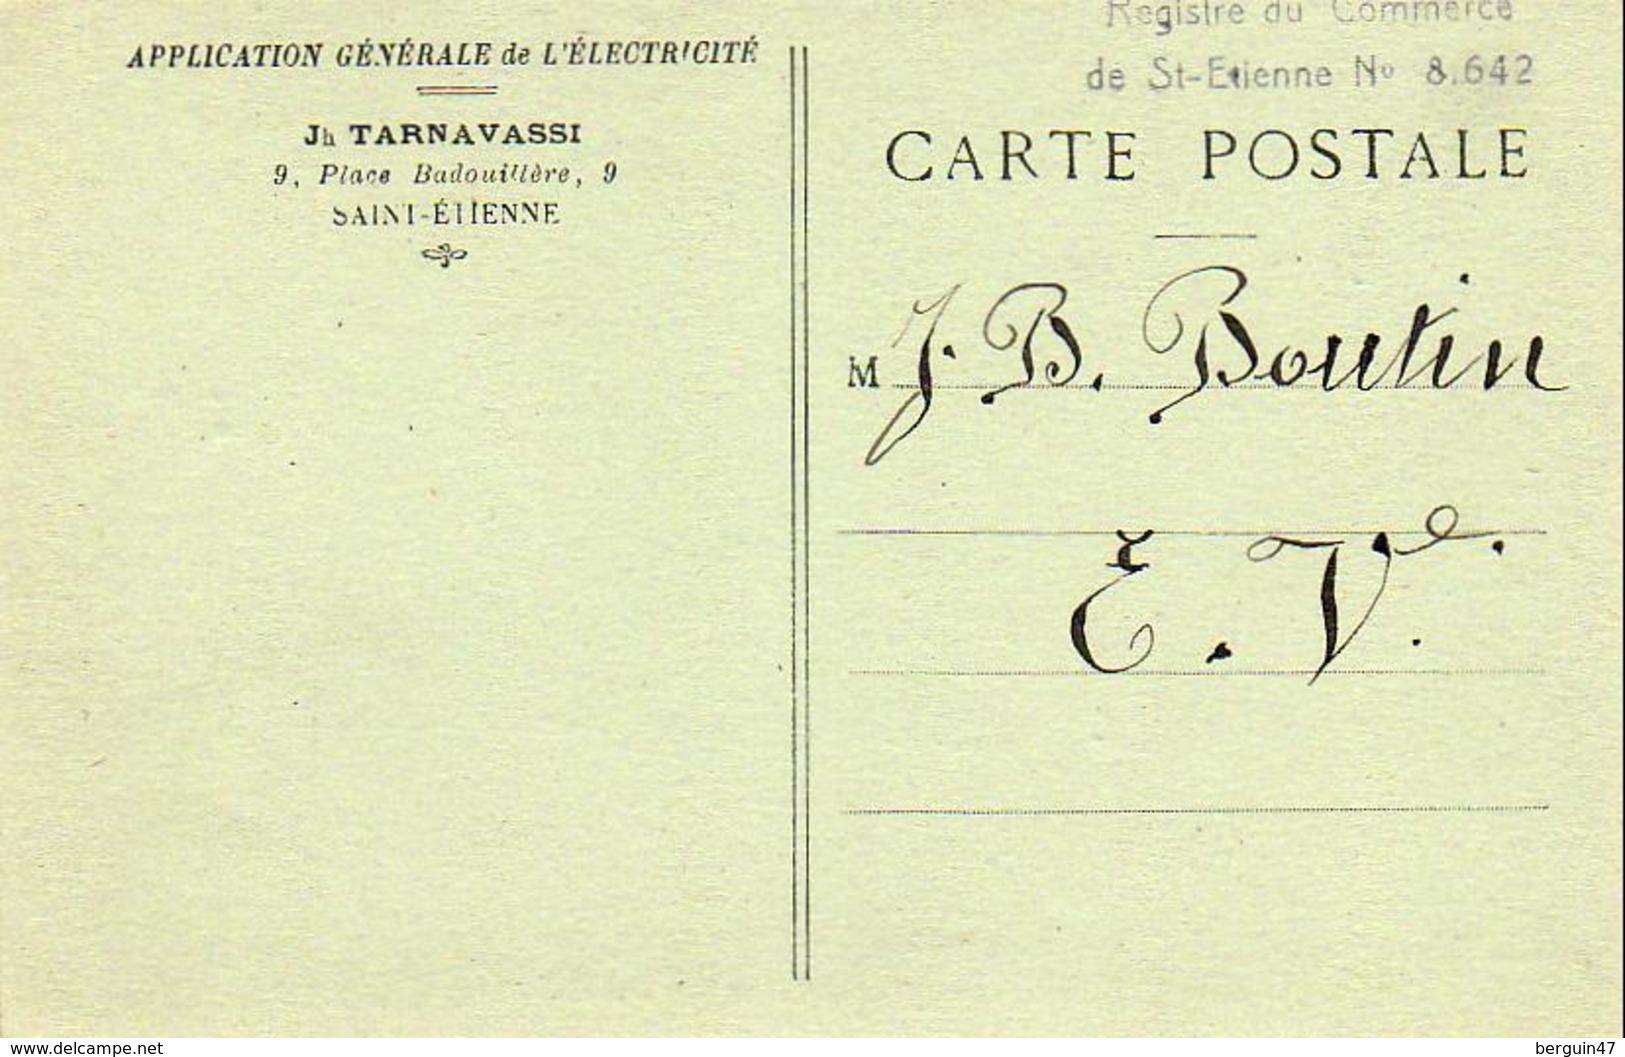 APPLICATION GÉNÉRALE de L'ÉLECTRICITÉ
Jh TARNAVASSI
9, Place Badouillère, 9
SAINT-ÉTIENNE
Registre du Commerce
de St-Etienne No 8.642
CARTE POSTALE
M J. B. Boutin
E. Ve.
www.delcampe.net
berguin47